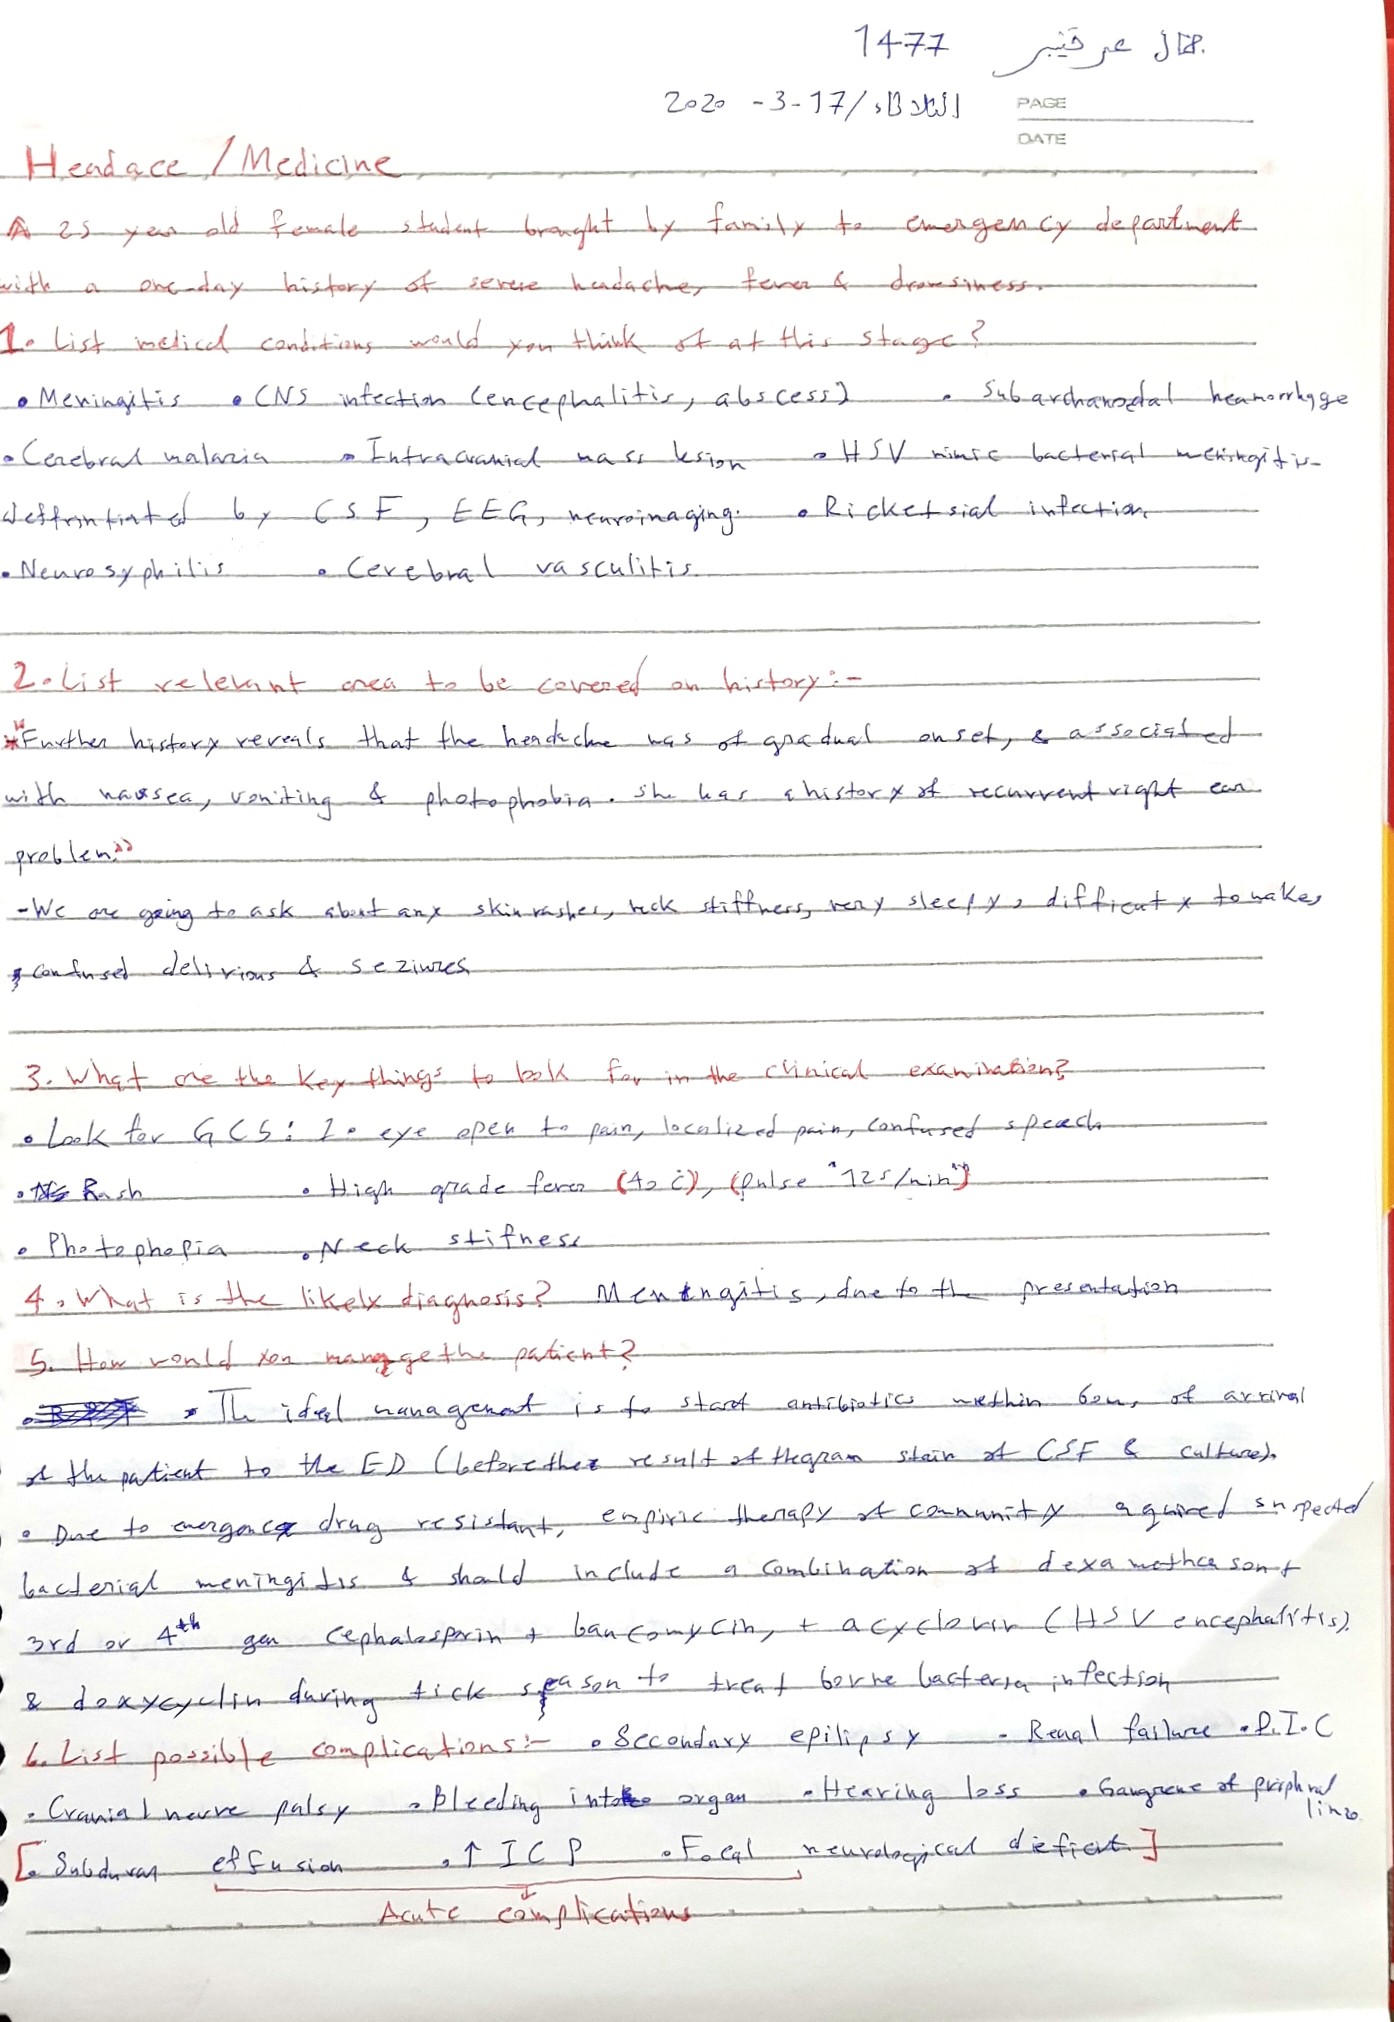 1477
الثلاثاء / 17-3-2020
PAGE
DATE
Headace / Medicine
A 25 year old female student brought by family to emergency department
with a one-day history of severe headache, fever & drowsiness.
1. List medical conditions would you think of at this stage?
• Meningitis • CNS infection (encephalitis, abscess) • Subarchanoetal heamorrhgge
• Cerebral malaria • Intracranial mass lesion • HSV mimic bacterial meningitis
deffrintiated by CSF, EEG, neuroimaging. • Ricketsial infection
• Neurosyphilis • Cerebral vasculitis
2. List relevant area to be covered on history:-
* "Further history reveals that the headache was of gradual onset, & associated
with nausea, vomiting & photophobia. She has a history of recurrent right ear
problem"
- We are going to ask about any skin rashes, neck stiffness, very sleepy, difficut y to wake,
confused delirious & seziures
3. What are the key things to look for in the clinical examination?
• Look for GCS: eye open to pain, localized pain, confused speech
• Rash • High grade fever (40 c), (pulse "125/min")
• Photophopia • Neck stifness
4. What is the likely diagnosis? Meningitis, due to the presentation
5. How would you manage the patient?
• The ideal management is to start antibiotics within 60m, of arrival
of the patient to the ED (before the result of the gram stain of CSF & culture).
• Due to emergence drug resistant, empiric therapy of community aquired suspected
bacterial meningitis & should include a combination of dexamethason +
3rd or 4th gen cephalosporin + vancomycin, + acyclovir (HSV encephalitis)
& doxycyclin during tick season to treat borne bacteria infection
6. List possible complications:- • Secondary epilipsy - Renal failure • D.I.C
• Cranial nerve palsy • Bleeding into organ • Hearing loss • Gangrene of priphral
limbs
[• Subdural effusion • ↑ ICP • Focal neurological dieficit]
Acute complications